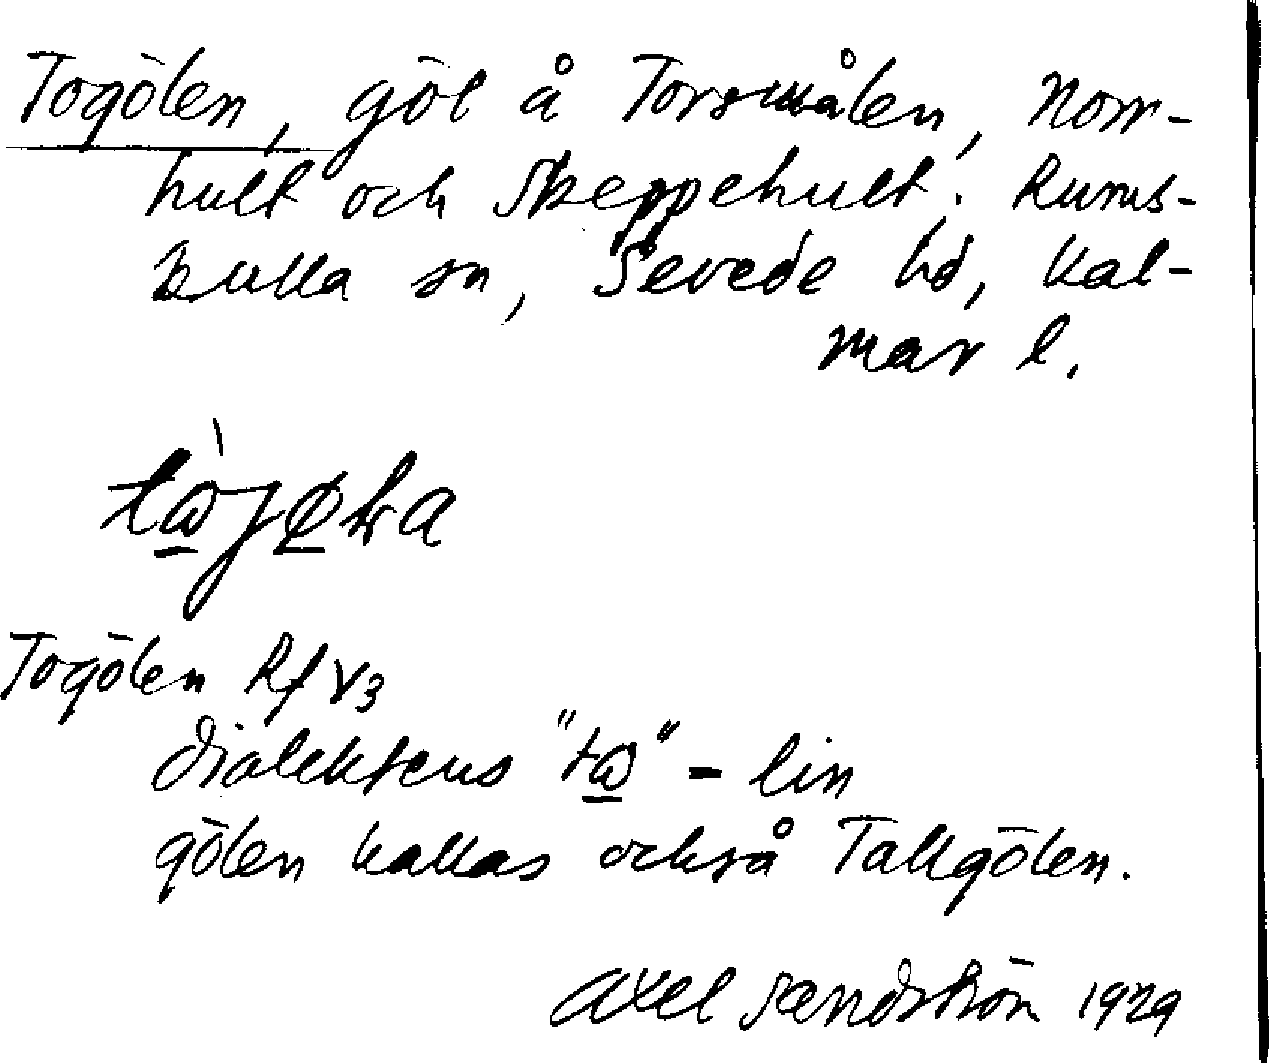 Togölen, göl å Torsmålen, Norr-
hult och Skeppehult. Rums-
kulla sn, Sevede hd, Kal-
mar l.
Togölen Rf V3
dialektens "tɷ" - lin
gölen kallas också Tallgölen.
Axel Sandström 1929